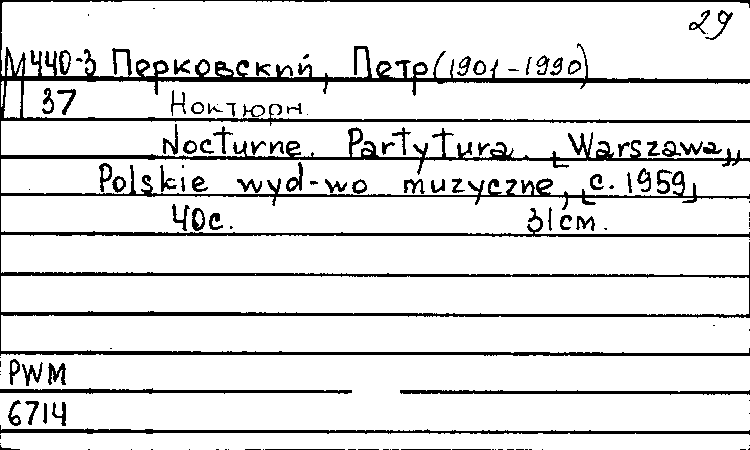 29
М440-3 Перковский, Петр (1901-1990)
П 37 Ноктюрн.
Nocturne. Partytura. [Warszawa],
Polskie wyd-wo muzyczne, [c. 1959]
40с. 31см.
PWM
6714